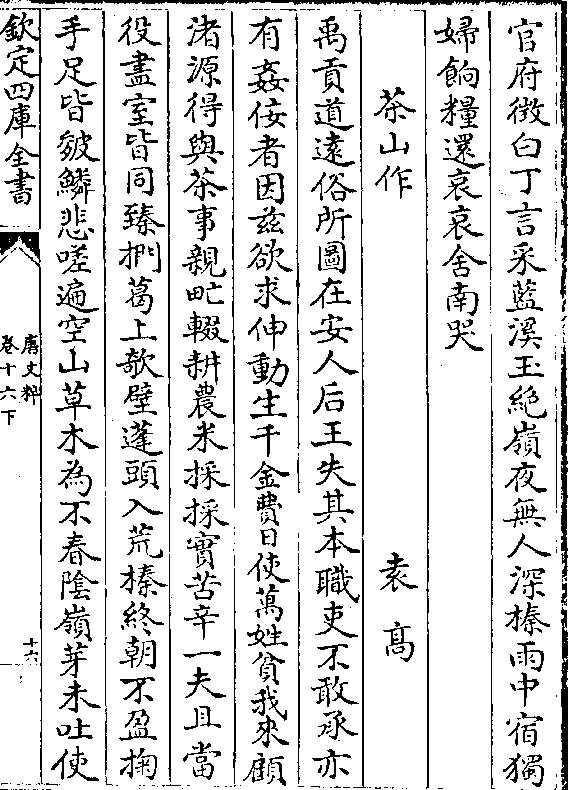 官府徴白丁言采藍溪玉絶嶺夜無人深榛雨中宿獨
婦餉糧還哀哀舍南哭
茶山作　袁高
禹貢道遠俗所圖在安人后王失其本職吏不敢承亦
有姦佞者因兹欲求伸動生千金費日使萬姓貧我來顧
渚源得與茶事親甿輟耕農耒採採實苦辛一夫且當
役盡室皆同臻捫葛上欹壁蓬頭入荒榛終朝不盈掬
手足皆皴鱗悲嗟遍空山草木為不春陰嶺芽未吐使
欽定四庫全書
唐文粹
卷十六下
十六